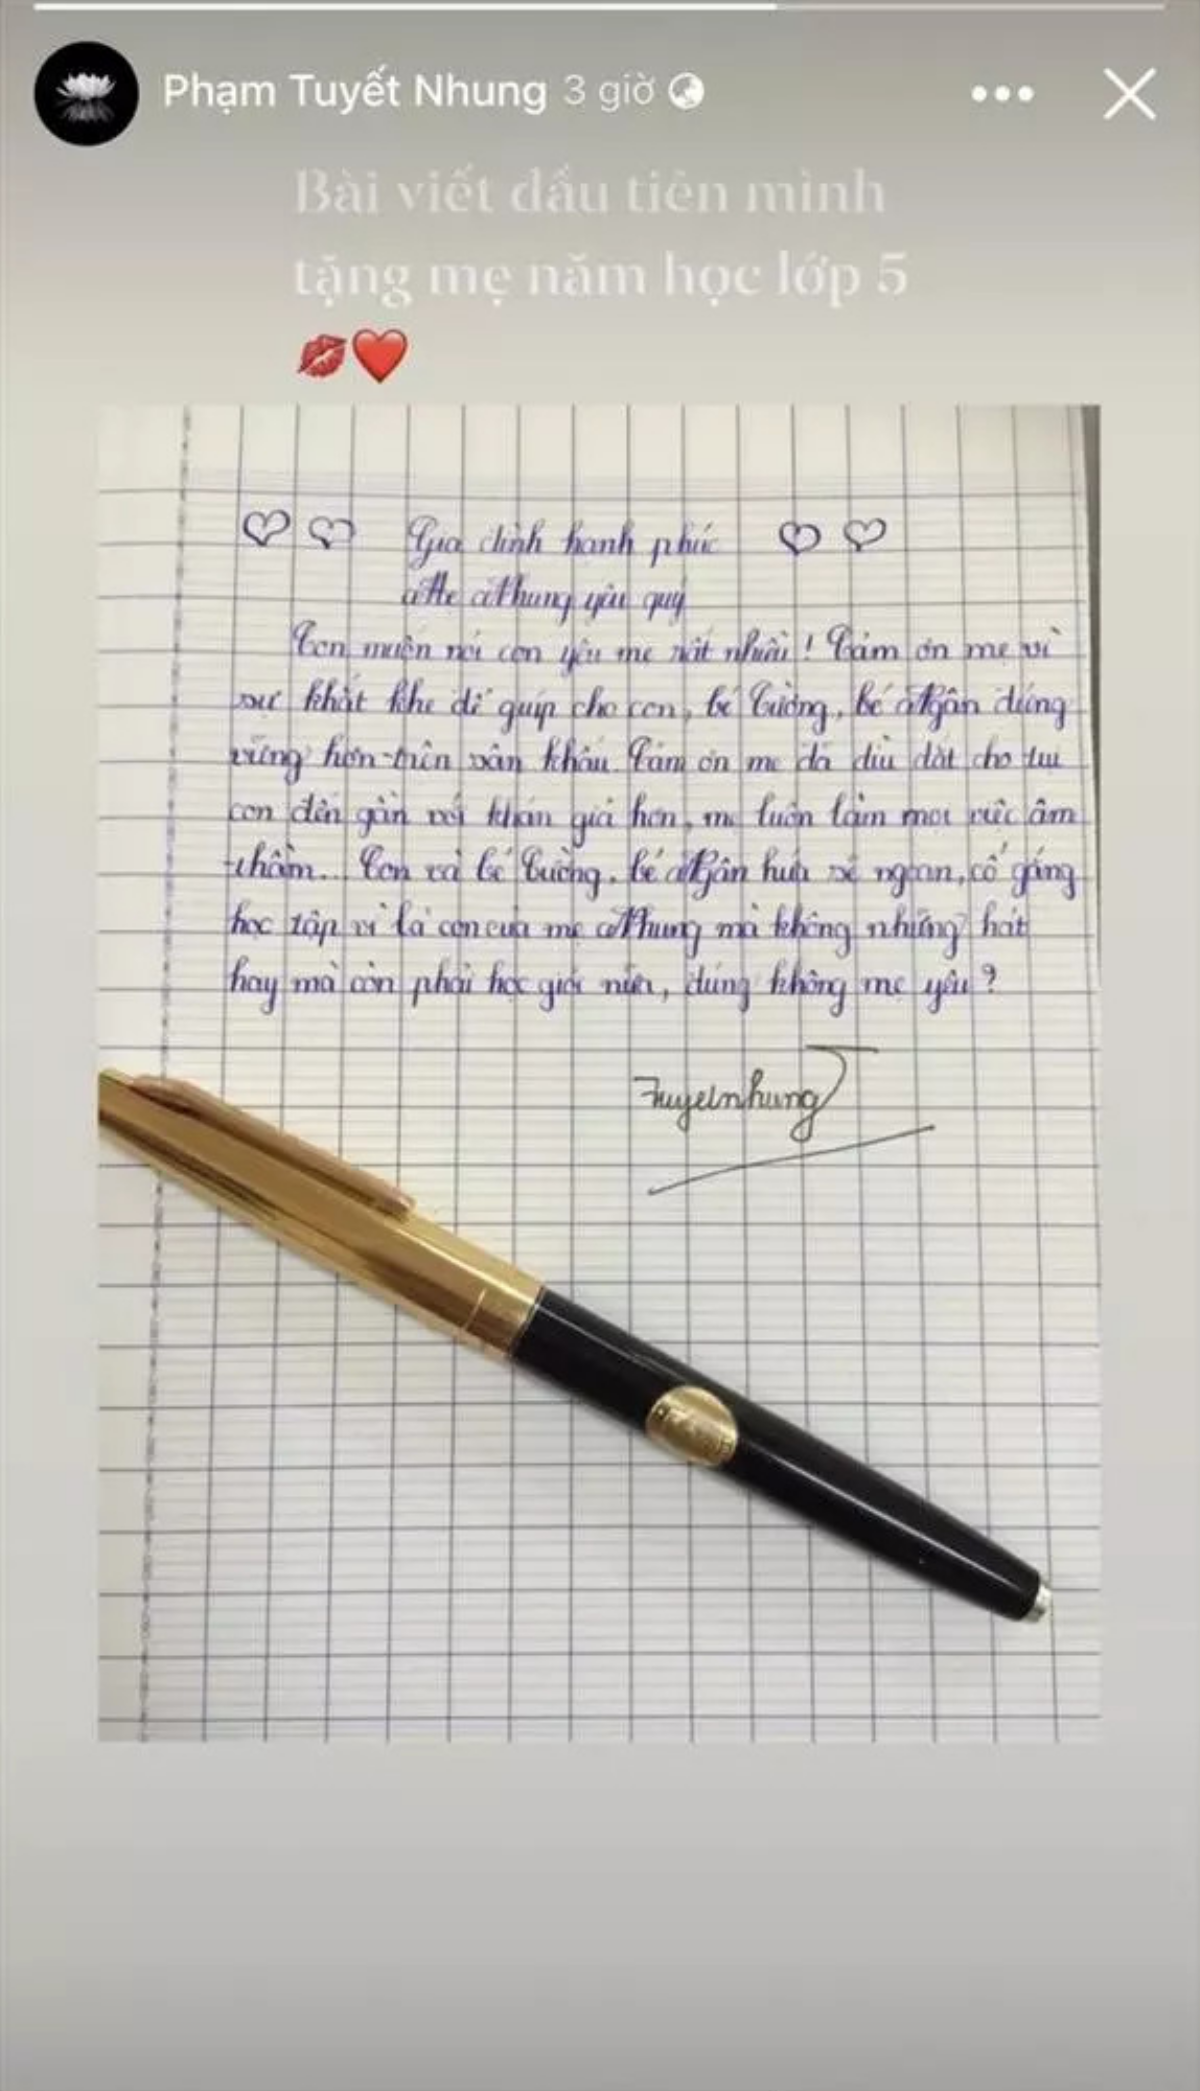 Phạm Tuyết Nhung 3 giờ
Bài viết đầu tiên mình
tặng mẹ năm học lớp 5
💋❤️
Gia đình hạnh phúc
Mẹ Nhung yêu quý
Con muốn nói con yêu mẹ rất nhiều! Cảm ơn mẹ vì
sự khắt khe để giúp cho con, bé Cường, bé Ngân đứng
vững hơn trên sân khấu. Cảm ơn mẹ đã dìu dắt cho tụi
con đến gần với khán giả hơn, mẹ luôn làm mọi việc âm
thầm... Con và bé Cường, bé Ngân hứa sẽ ngoan, cố gắng
học tập vì là con của mẹ Nhung mà không những hát
hay mà còn phải học giỏi nữa, đúng không mẹ yêu?
Tuyetnhung